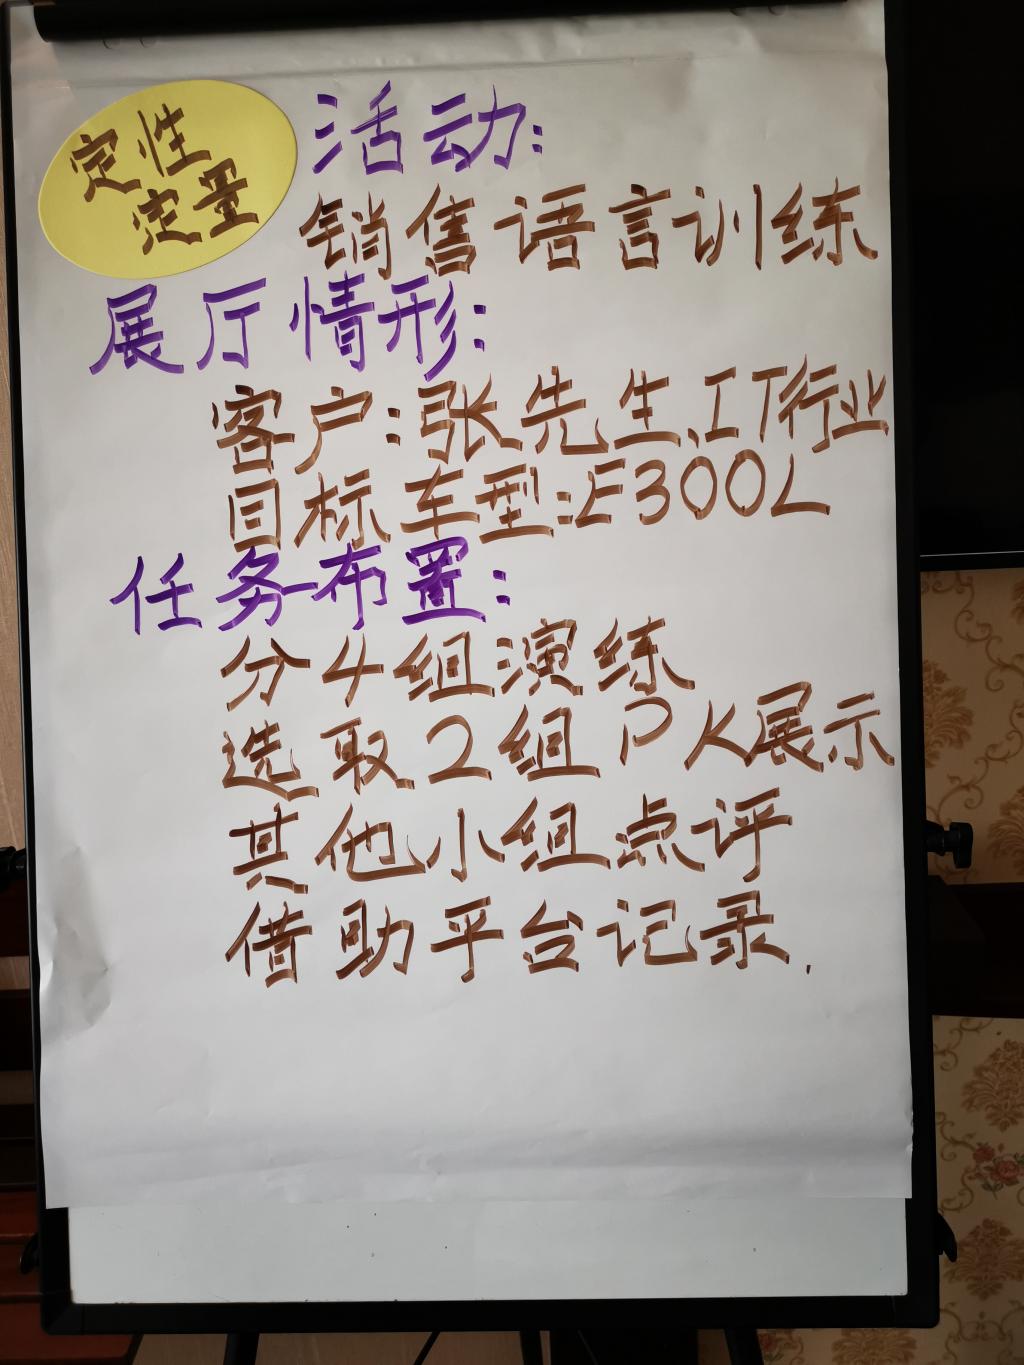 定性
定量
活动:
销售语言训练
展厅情形:
客户:张先生、IT行业
目标车型:E300L
任务布置:
分4组演练
选取2组PK展示
其他小组点评
借助平台记录.